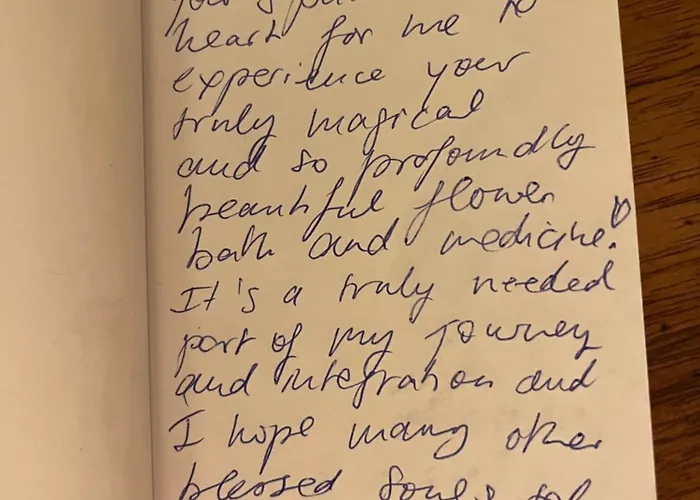 heart for me to
experience your
truly magical
and so profoundly
beautiful flower
bath and medicine!
It's a truly needed
part of my journey
and integration and
I hope many other
blessed souls